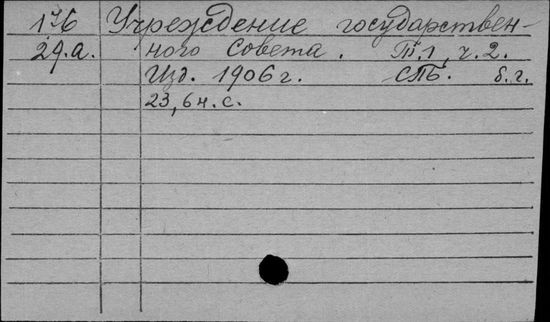 176 Учреждение государствен-
29.а. ного Совета. Т.1, ч.2.
Изд. 1906 г. СПб. б.г.
23, 64 с.